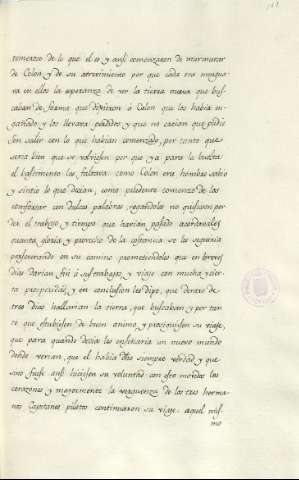 temeroso de lo que el es y ansi comenzaron de murmurar
de Colon y de su atrevimiento por que cada ora mengua
va en ellos la esperanza de ver la tierra nueva que bus
caban de forma que dixeron a Colon que los habia en
gañado, y los llevava perdidos y que no sabian que pudie
sen saler con lo que habian comenzado, por tanto que
seria bien que se volviesen por que ya para la buelta
el bastimento les faltava: como Colon era hombre sabio
y sintio lo que decian, como prudente comenzo de los
confortar con dulces palabras rogandoles no quisiesen per
der el trabajo y tiempo que havian pasado acordavales
quanta gloria y provecho de la constancia se les seguiria
perseverando en su camino prometiendoles que en breves
dias darian fin á sus trabajos y viaje con mucha y cier
ta prosperidad, y en conclusion les dixo, que dentro de
tres dias hallarian la tierra, que buscaban y por tan
to que estubiesen de buen animo y prosiguiesen su viaje,
que para quando decia les enseñaria un nuevo mundo
donde verian, que el habia dho siempre verdad y que
sino fuese ansi hiciesen su voluntad con esto movidos los
corazones y mayormente la verguenza de los tres herma
nos Capitanes pilotos continuaron su viaje. aquel mis
mo